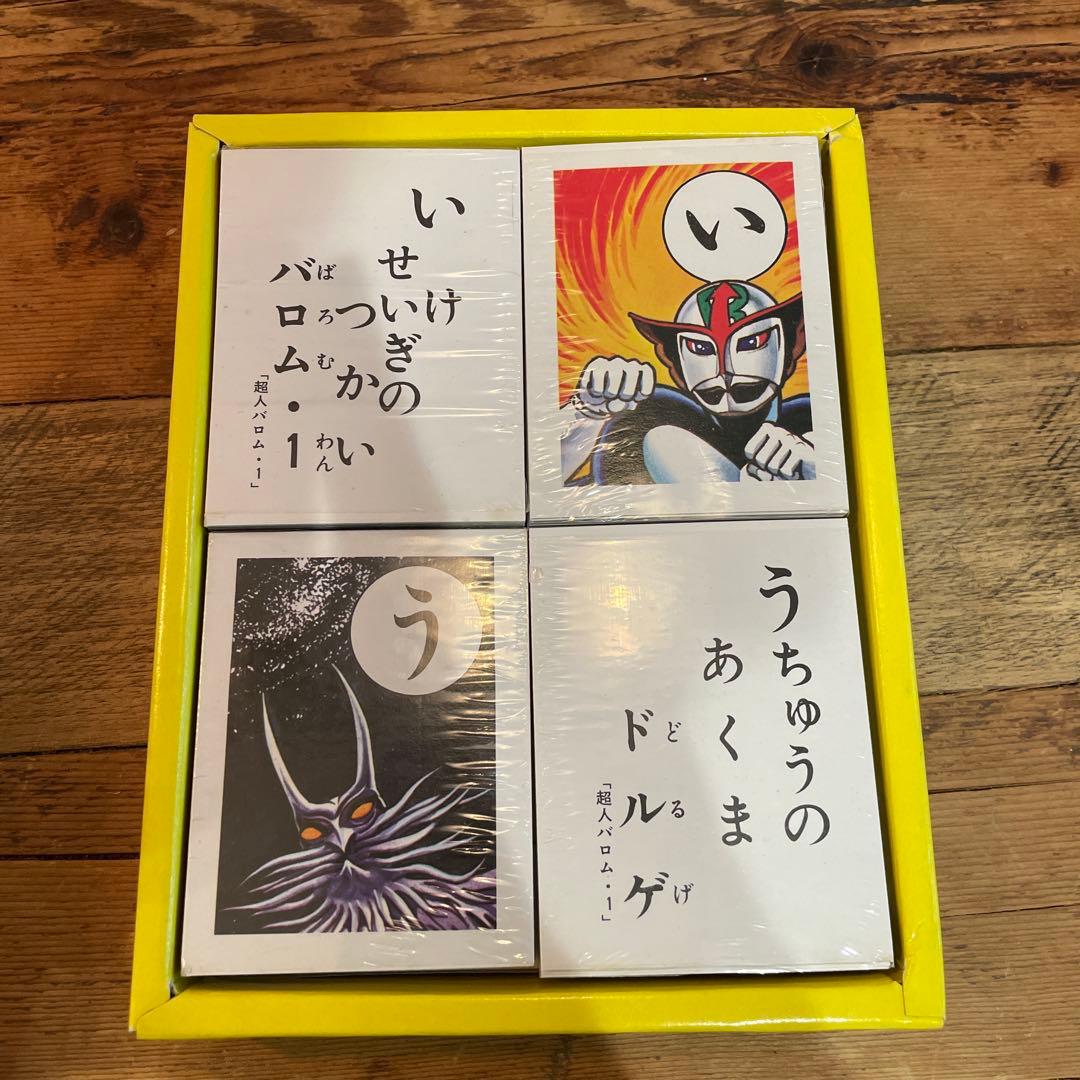 いけ
せいぎの
つかい
ばろむわん
バロム・1
「超人バロム・1」
い
う
うちゅうの
あくま
どるげ
ドルゲ
「超人バロム・1」